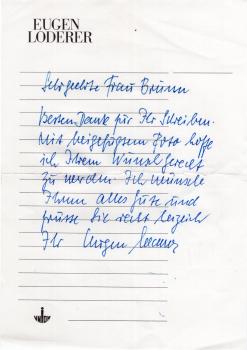 EUGEN
LODERER
Sehr geehrte Frau Brunn
Besten Dank für Ihr Schreiben.
Mit beigefügtem Foto hoffe
ich Ihrem Wunsch gerecht
zu werden. Ich wünsche
Ihnen alles Gute und
grüsse Sie recht herzlich
Ihr Eugen Loderer